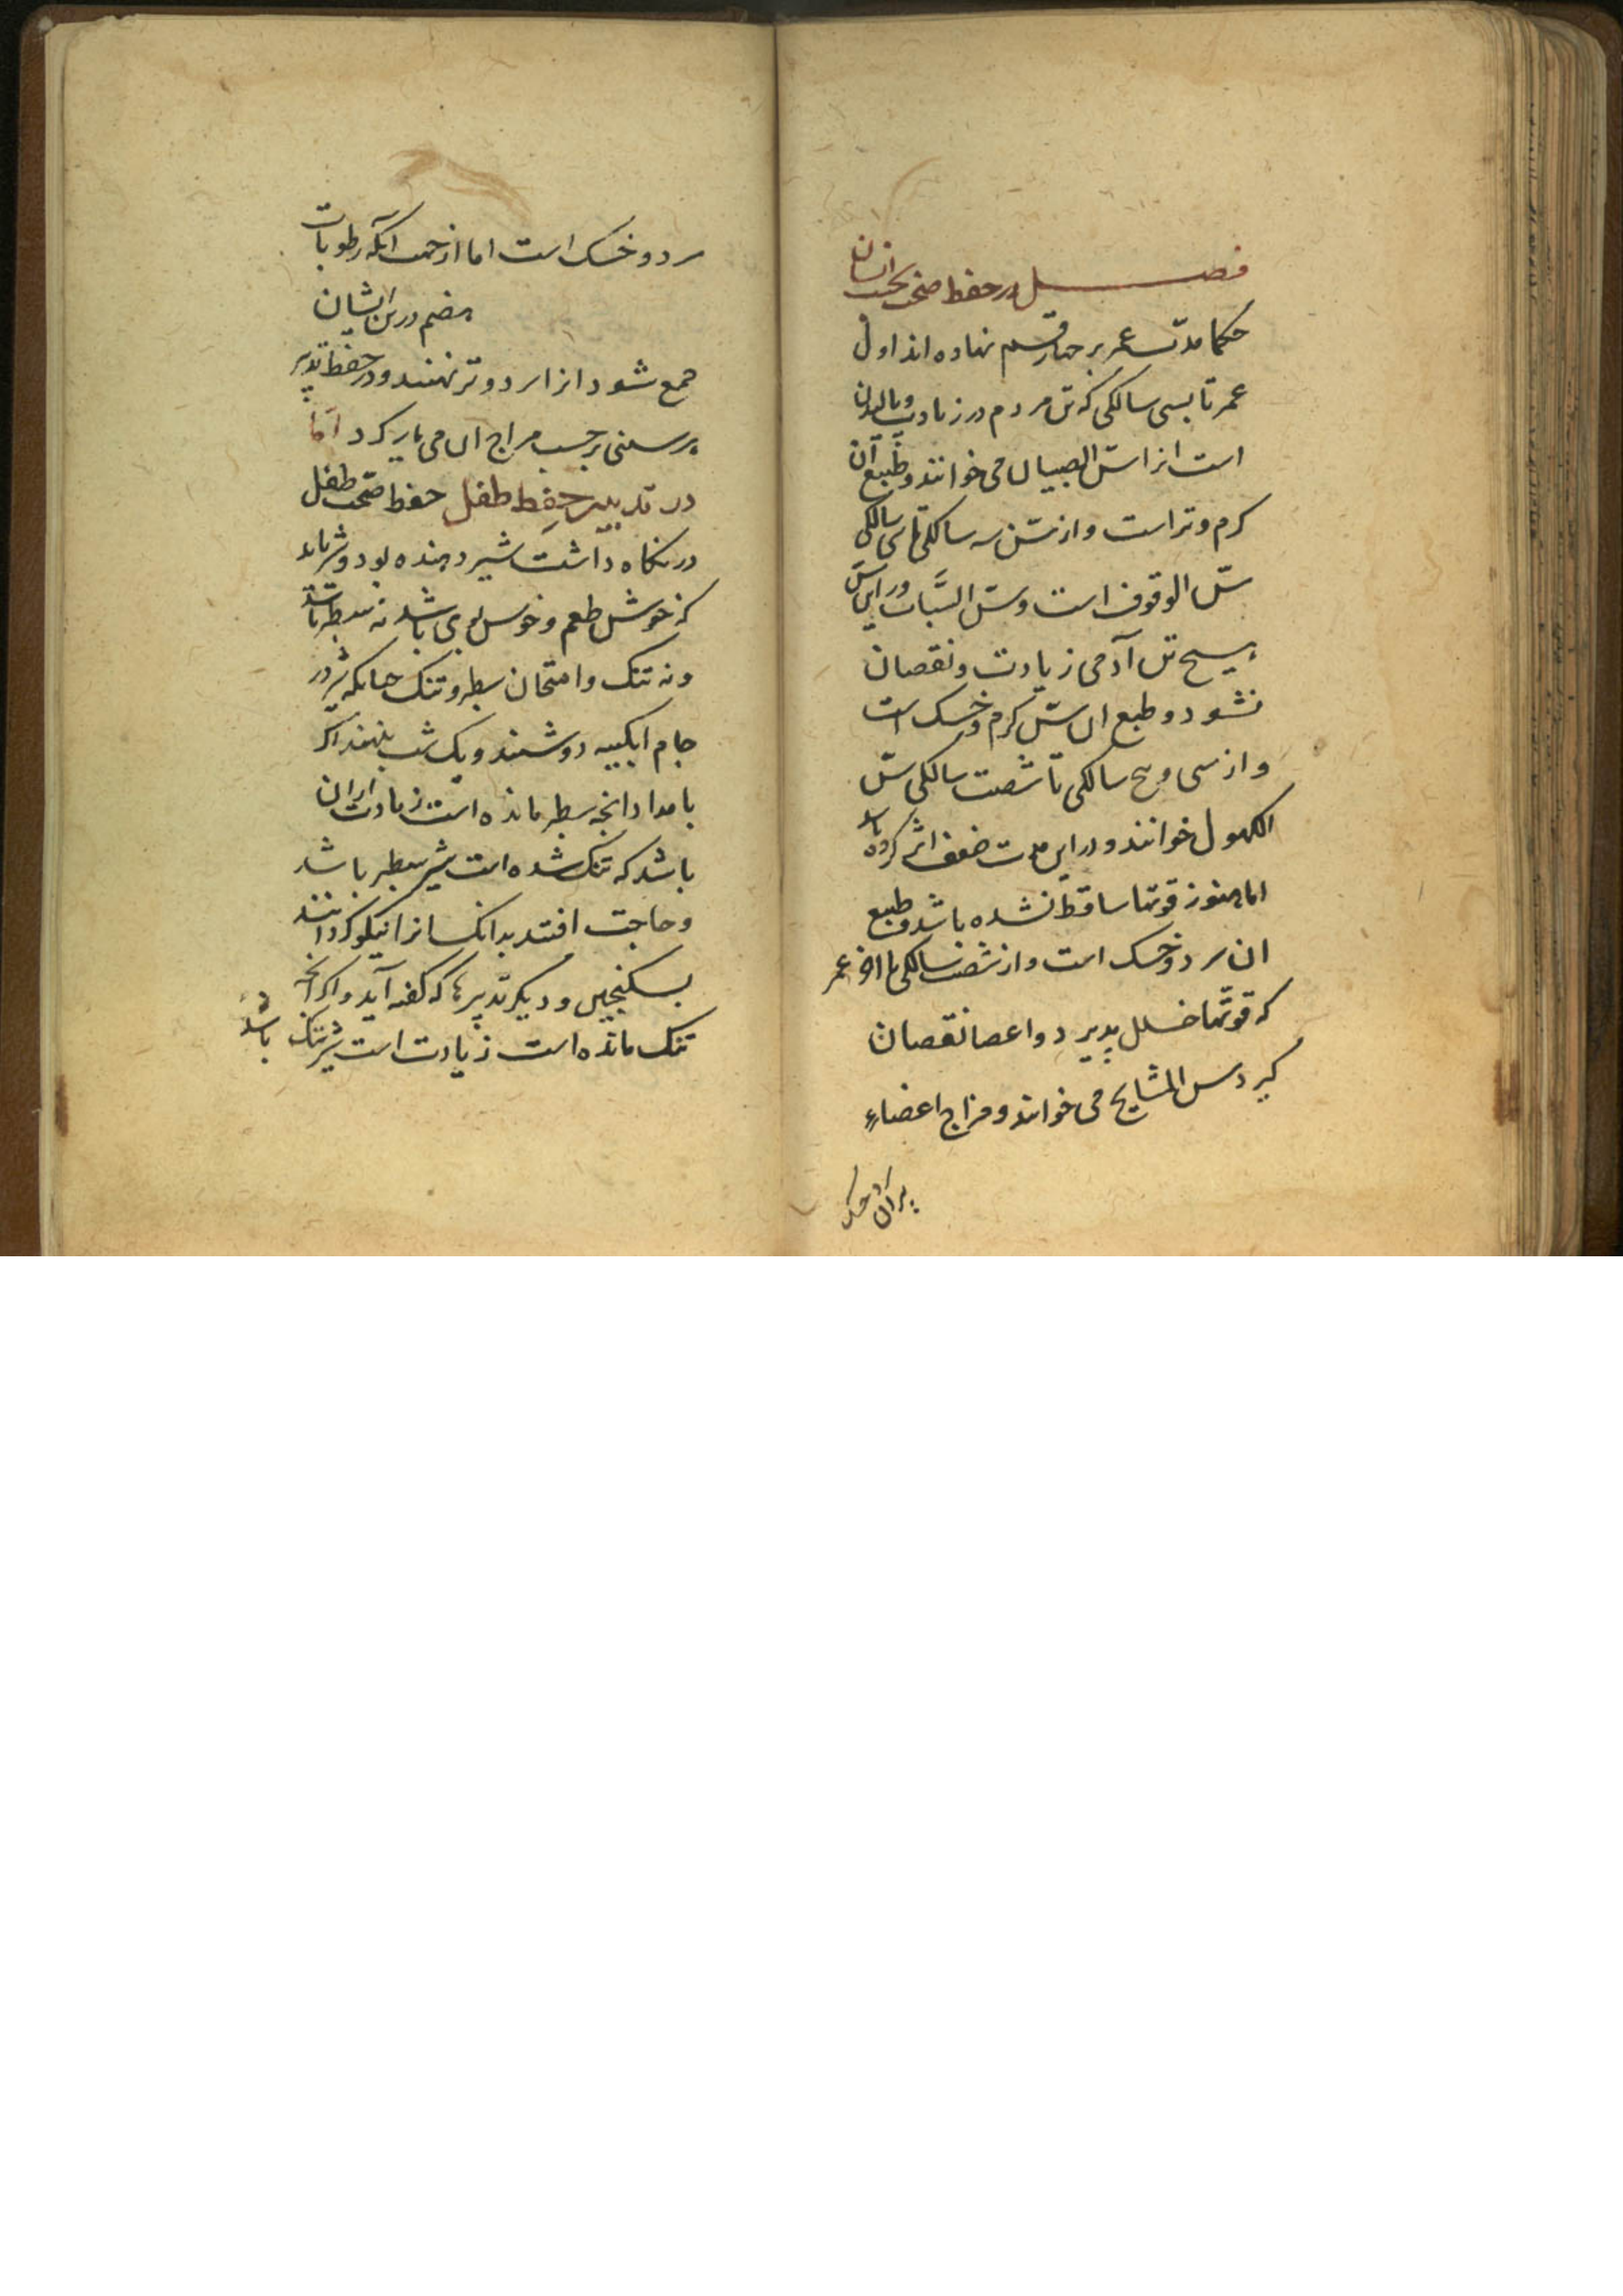 فصل در حفظ صحت بحسب اسنان
حکما مدت عمر بر چهار قسم نهاده اند اول
عمر تا بسی سالکی که تن مردم در زیادت و بالیدن
است انرا سن الصبیان می خوانند و طبع آن
کرم و تر است و از سن سه سالکی تا سی سالکی
سن الوقوف است و سن الشباب و در این سن
هیچ تن آدمی زیادت و نقصان
نشود و طبع ان سن کرم و خشک است
و از سی و پنج سالکی تا شصت سالکی سن
الکهول خوانند و در این مدت ضعف اثر کرده باشد
اما هنوز قوتها ساقط نشده باشد و طبع
ان سرد و خشک است و از شصت سالکی تا اخر عمر
که قوتها خلل پذیرد و اعضا نقصان
کیرد سن المشایخ می خوانند و مزاج اعضاء
پیران خشک
سرد و خشک است اما از جهت آنکه رطوبات
هضم در تن ایشان
جمع شود انرا سرد و تر نهند و در حفظ تدبیر
هر سنی بر حسب مزاج ان می باید کرد اما
در تدبیر حفظ طفل حفظ صحت طفل
در نکاه داشت شیر دهنده بود و شیر باید
که خوش طعم و خوش بوی باشد نه سطبر باشد
و نه تنک و امتحان سطبر و تنک چنانکه شیر در
جام ابکینه دوشند و یک شب بنهند اکر
بامداد انچه سطبر مانده است زیادت از ان
باشد که تنک شده است شیر سطبر باشد
و حاجت افتد بدانکسانرا نیکو کردانند
بسکنجبین و دیکر تدبیرها که کفته آید و اکر انچه
تنک مانده است زیادت است شیر تنک باشد